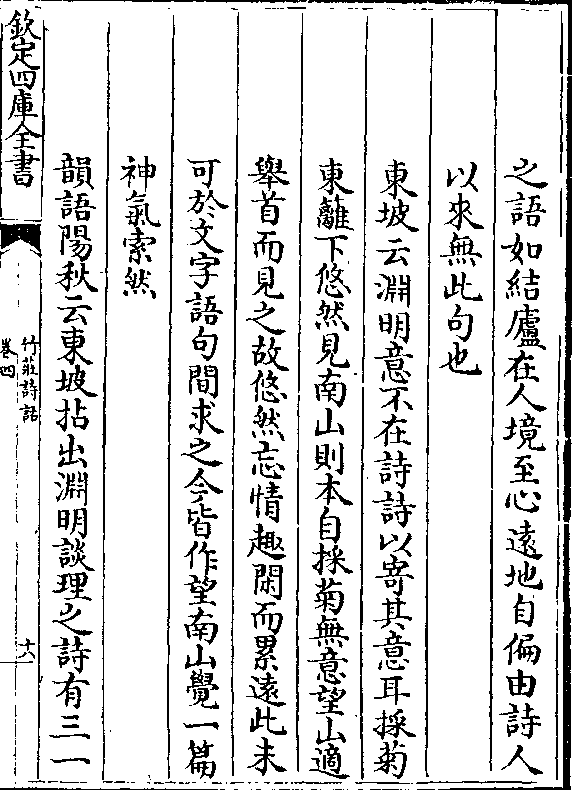 之語如結廬在人境至心遠地自偏由詩人
以來無此句也
東坡云淵明意不在詩詩以寄其意耳採菊
東籬下悠然見南山則本自採菊無意望山適
舉首而見之故悠然忘情趣閑而累遠此未
可於文字語句間求之今皆作望南山覺一篇
神氣索然
韻語陽秋云東坡拈出淵明談理之詩有三一
欽定四庫全書
竹莊詩話
卷四
十六